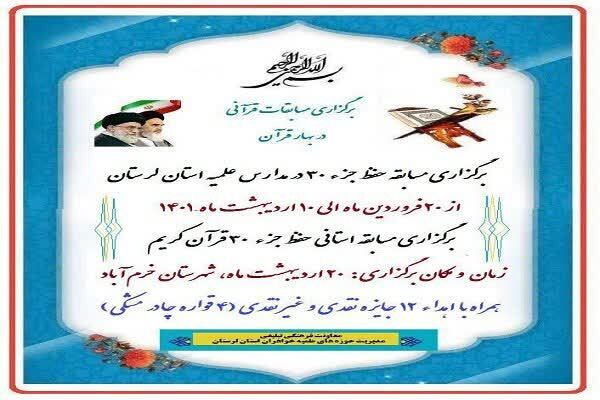 بسم الله الرحمن الرحیم
برگزاری مسابقات قرآنی
در بهار قرآن
برگزاری مسابقه حفظ جزء ۳۰ در مدارس علمیه استان لرستان
از ۲۰ فروردین ماه الی ۱۰ اردیبهشت ماه ۱۴۰۱
برگزاری مسابقه استانی حفظ جزء ۳۰ قرآن کریم
زمان و مکان برگزاری: ۲۰ اردیبهشت ماه، شهرستان خرم آباد
همراه با اهداء ۱۲ جایزه نقدی و غیر نقدی (۴ قواره چادر مشکی)
معاونت فرهنگی تبلیغی
مدیریت حوزه های علمیه خواهران استان لرستان